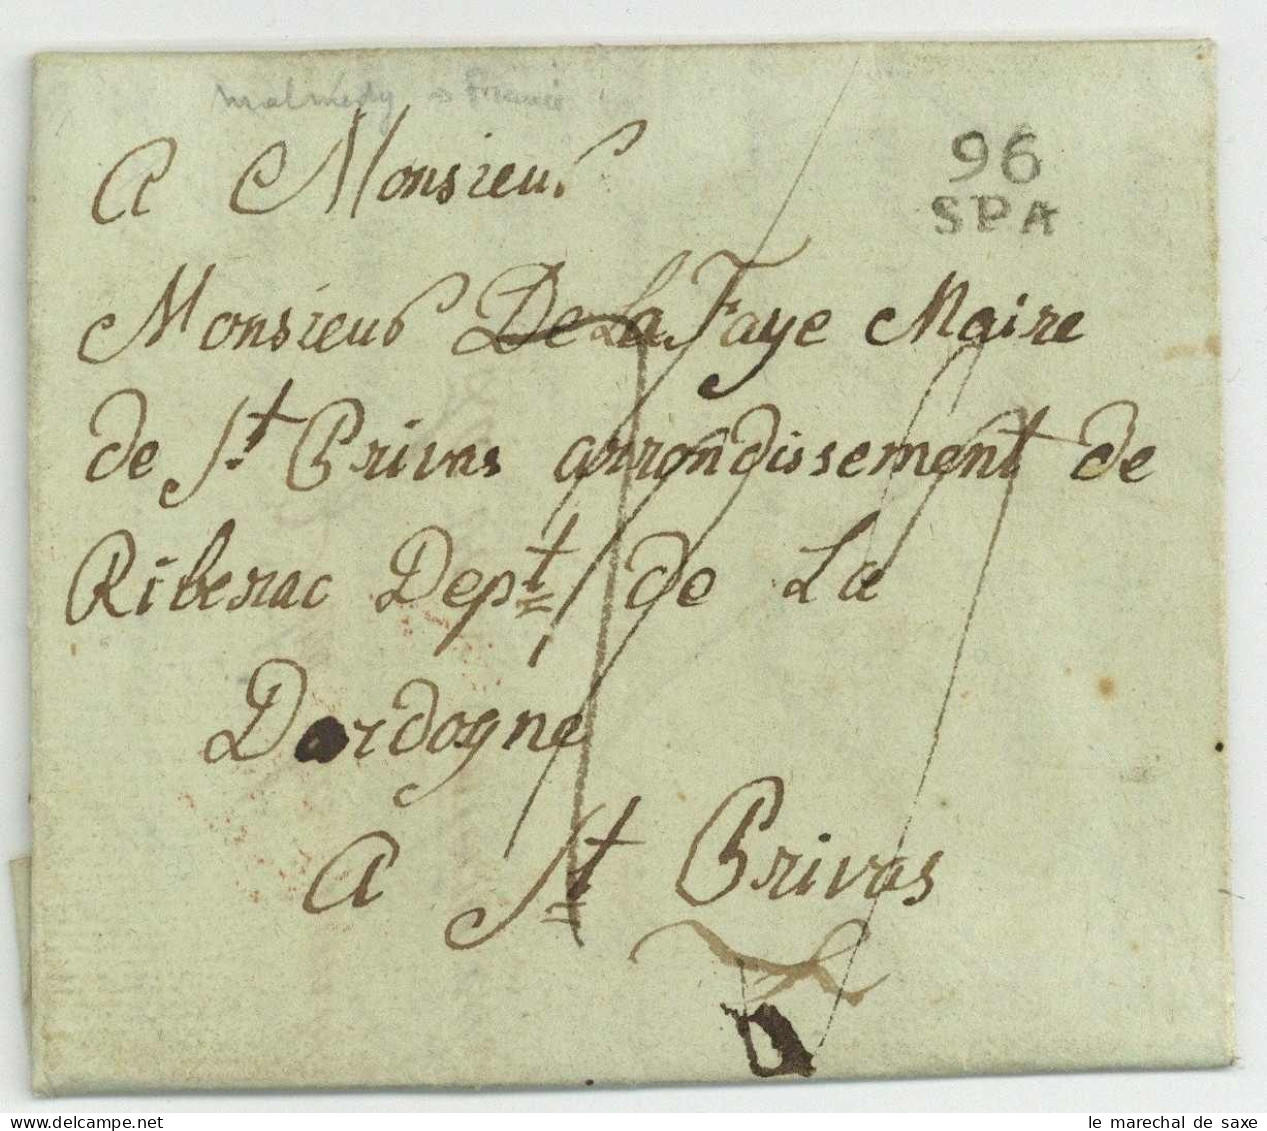 malmedy → France
A Monsieur
96
SPA
Monsieur De La Faye Maire
de St. Privas arrondissement de
Riberac Dept. de La
Dordogne
A St. Privas
delcampe.net
le marechal de saxe